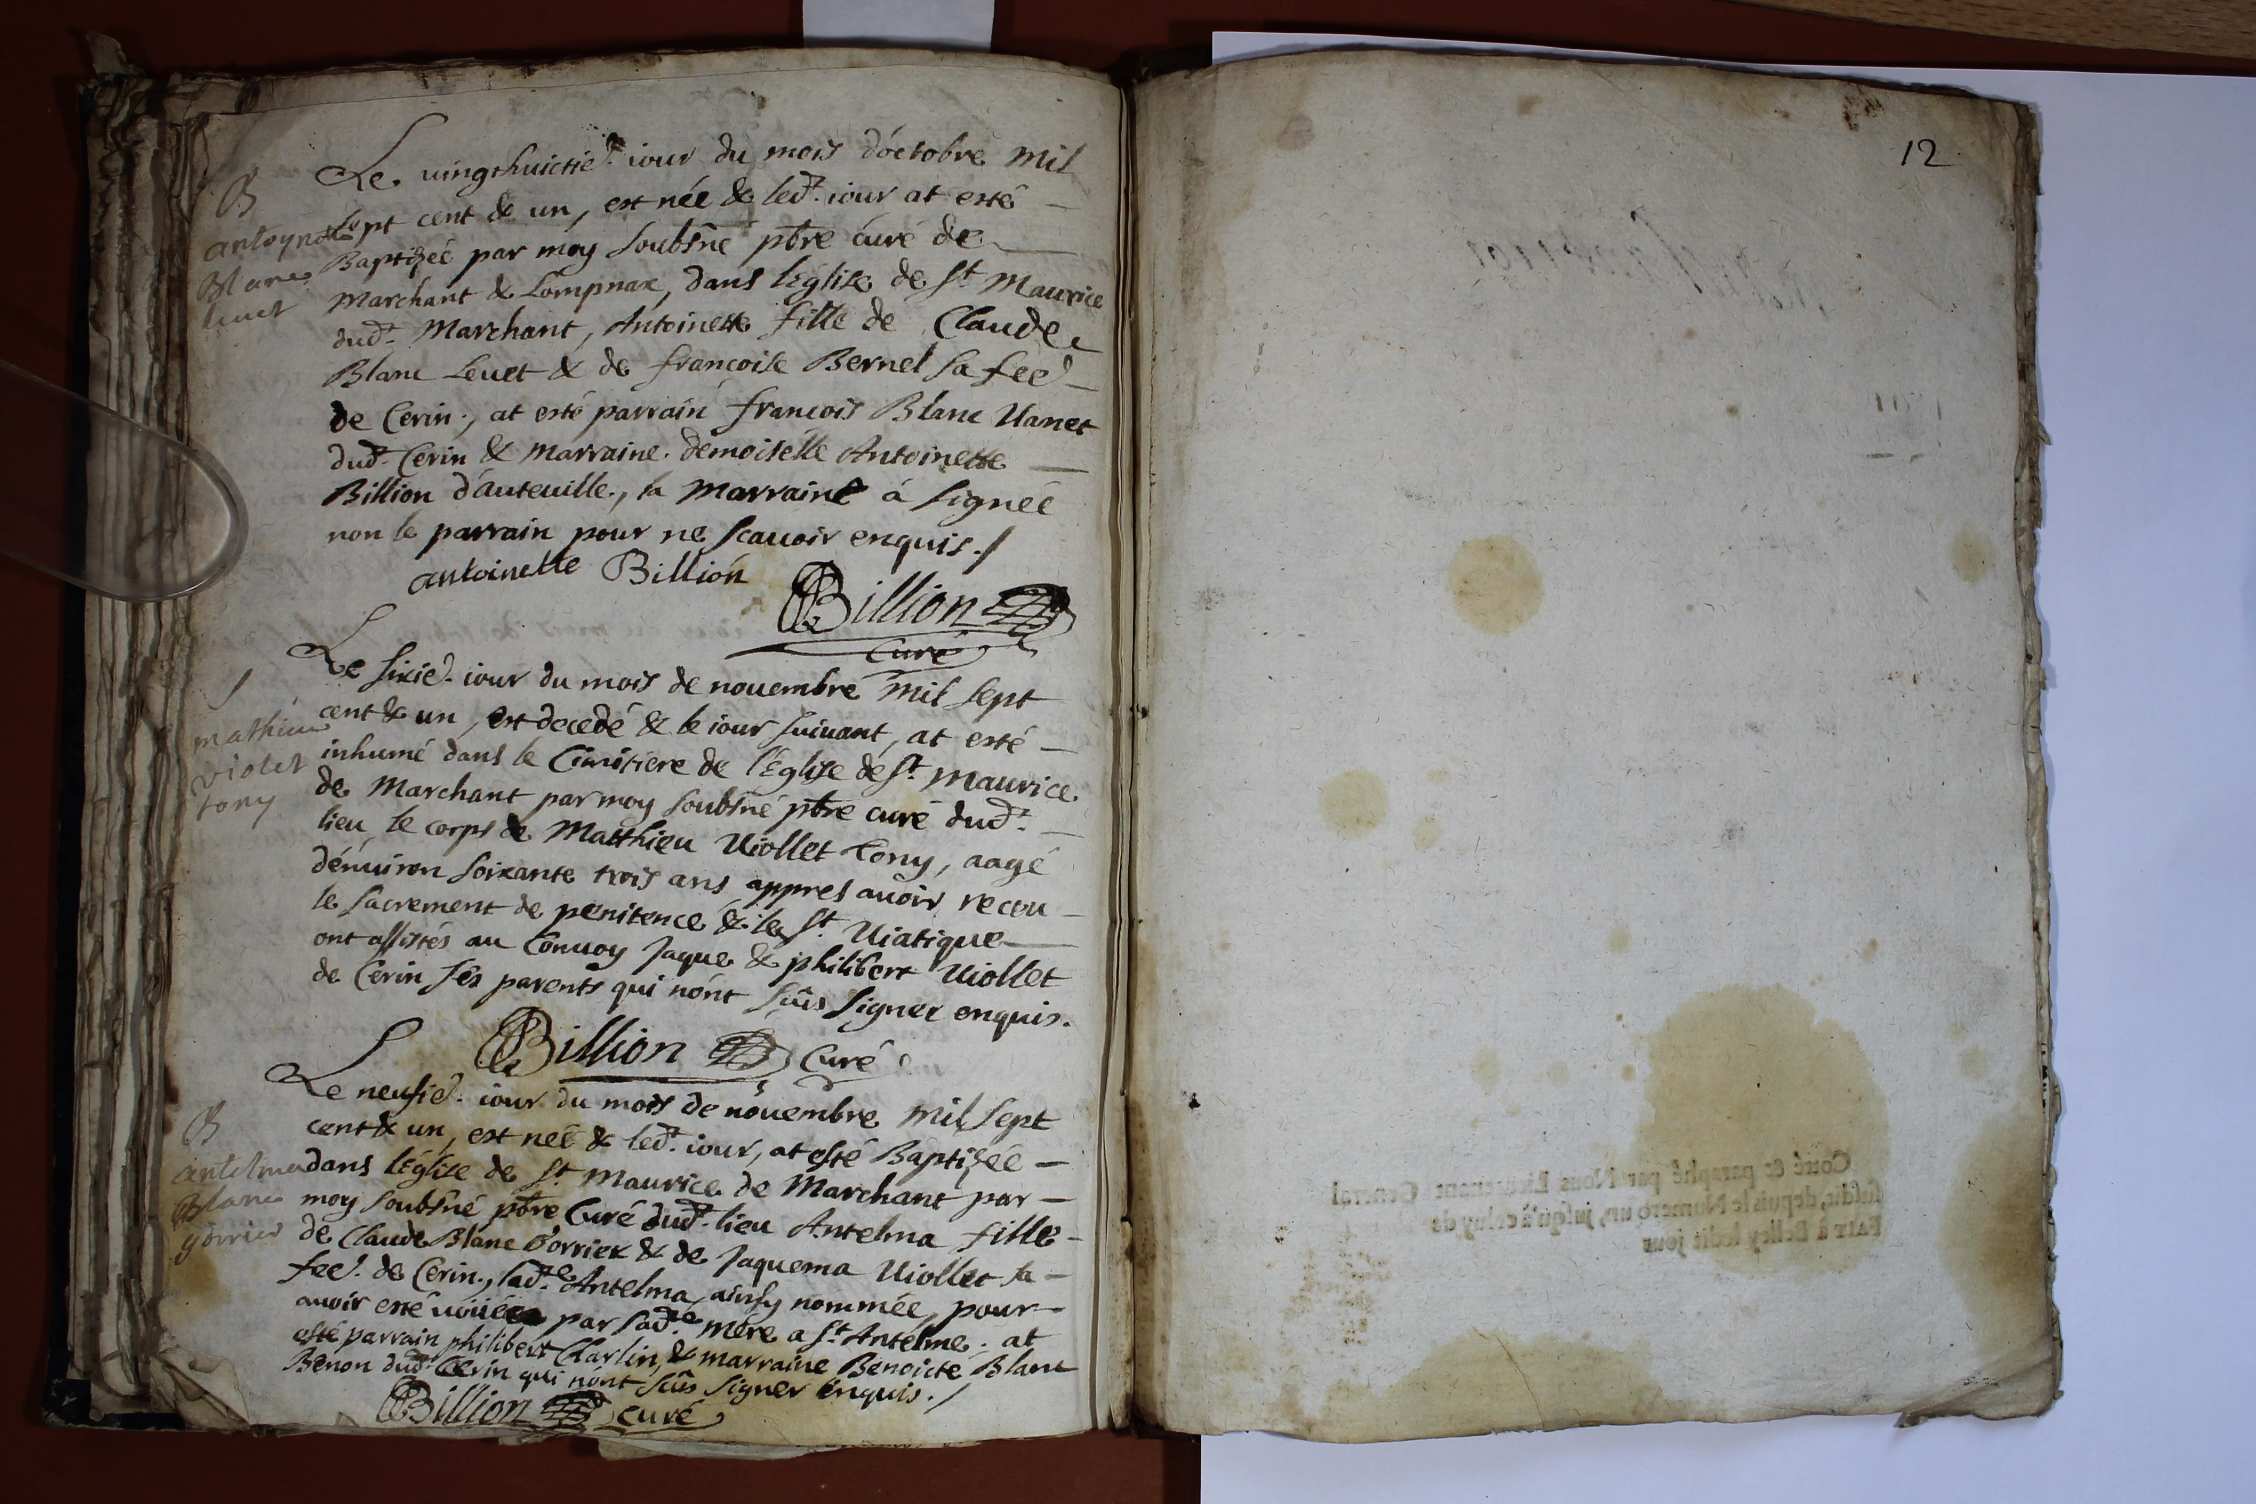 B
antoynette
Blanc
leuet
Le uingthuictie.e iour du mois d'octobre mil
sept cent & un, est née & led.t iour at esté
Baptizéé par moy soubsné pbre curé de
Marchant & Lompnax, dans l'Eglise de S.t Maurice
dud.t Marchant, Antoinette fille de Claude
Blanc Leuet & de françoise Bernel sa fee
de Cerin., at esté parrain francois Blanc Uanet
dud.t Cerin & marraine demoiselle Antoinette
Billion d'auteuille., la marraine á signéé
non le parrain pour ne scauoir enquis./
antoinette Billion
Billion
Curé
S
mathieu
violet
tony
Le sixie. iour du mois de nouembre mil sept
cent & un, est decedé & le iour suiuant, at esté
inhumé dans le Cimitiere de l'Eglise de S.t Maurice
de Marchant par moy soubsné pbre curé dud.t
lieu le corps de Matthieu Uiollet Tony, aagé
d'enuiron soixante trois ans appres auoir receu
le sacrement de penitence & le S.t Uiatique
ont assistés au Conuoy Jaque & philibert Uiollet
de Cerin ses parents qui n'ont sçûs signer enquis.
Billion Curé
B
antelma
Blanc
gorrier
Le neufie. iour du mois de nouembre mil sept
cent & un, est néé & led.t iour, at esté Baptizéé
dans l'Eglise de S.t Maurice de Marchant par
moy soubsné pbre Curé dud.t lieu Antelma fille
de Claude Blanc Gorrier & de Jaquema Uiollet sa
fee. de Cerin., lad.te Antelma, ainsy nommée, pour
auoir esté uoüéé par sad.te mere a S.t Antelme. at
esté parrain philibert Charlin, & marraine Benoicte Blanc
Benon dud.t Cerin qui n'ont sçûs signer enquis./
Billion curé
12
Cotté & paraphé par Nous Lieutenant General
susdit, depuis le Numero un, jusqu'à celuy de
FAIT à Belley ledit jour